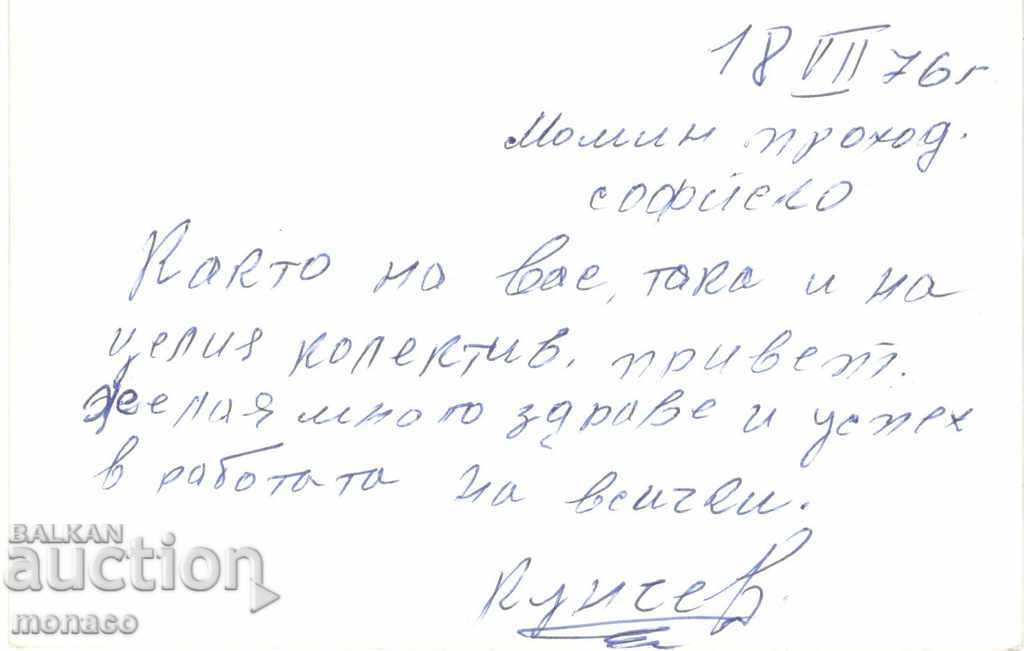 18 VII 76 г
Момин проход.
софийско
Както на вас, така и на
целия колектив. привет.
желая много здраве и успех
в работата на всички.
Кунчев
BALKAN
auction
monaco